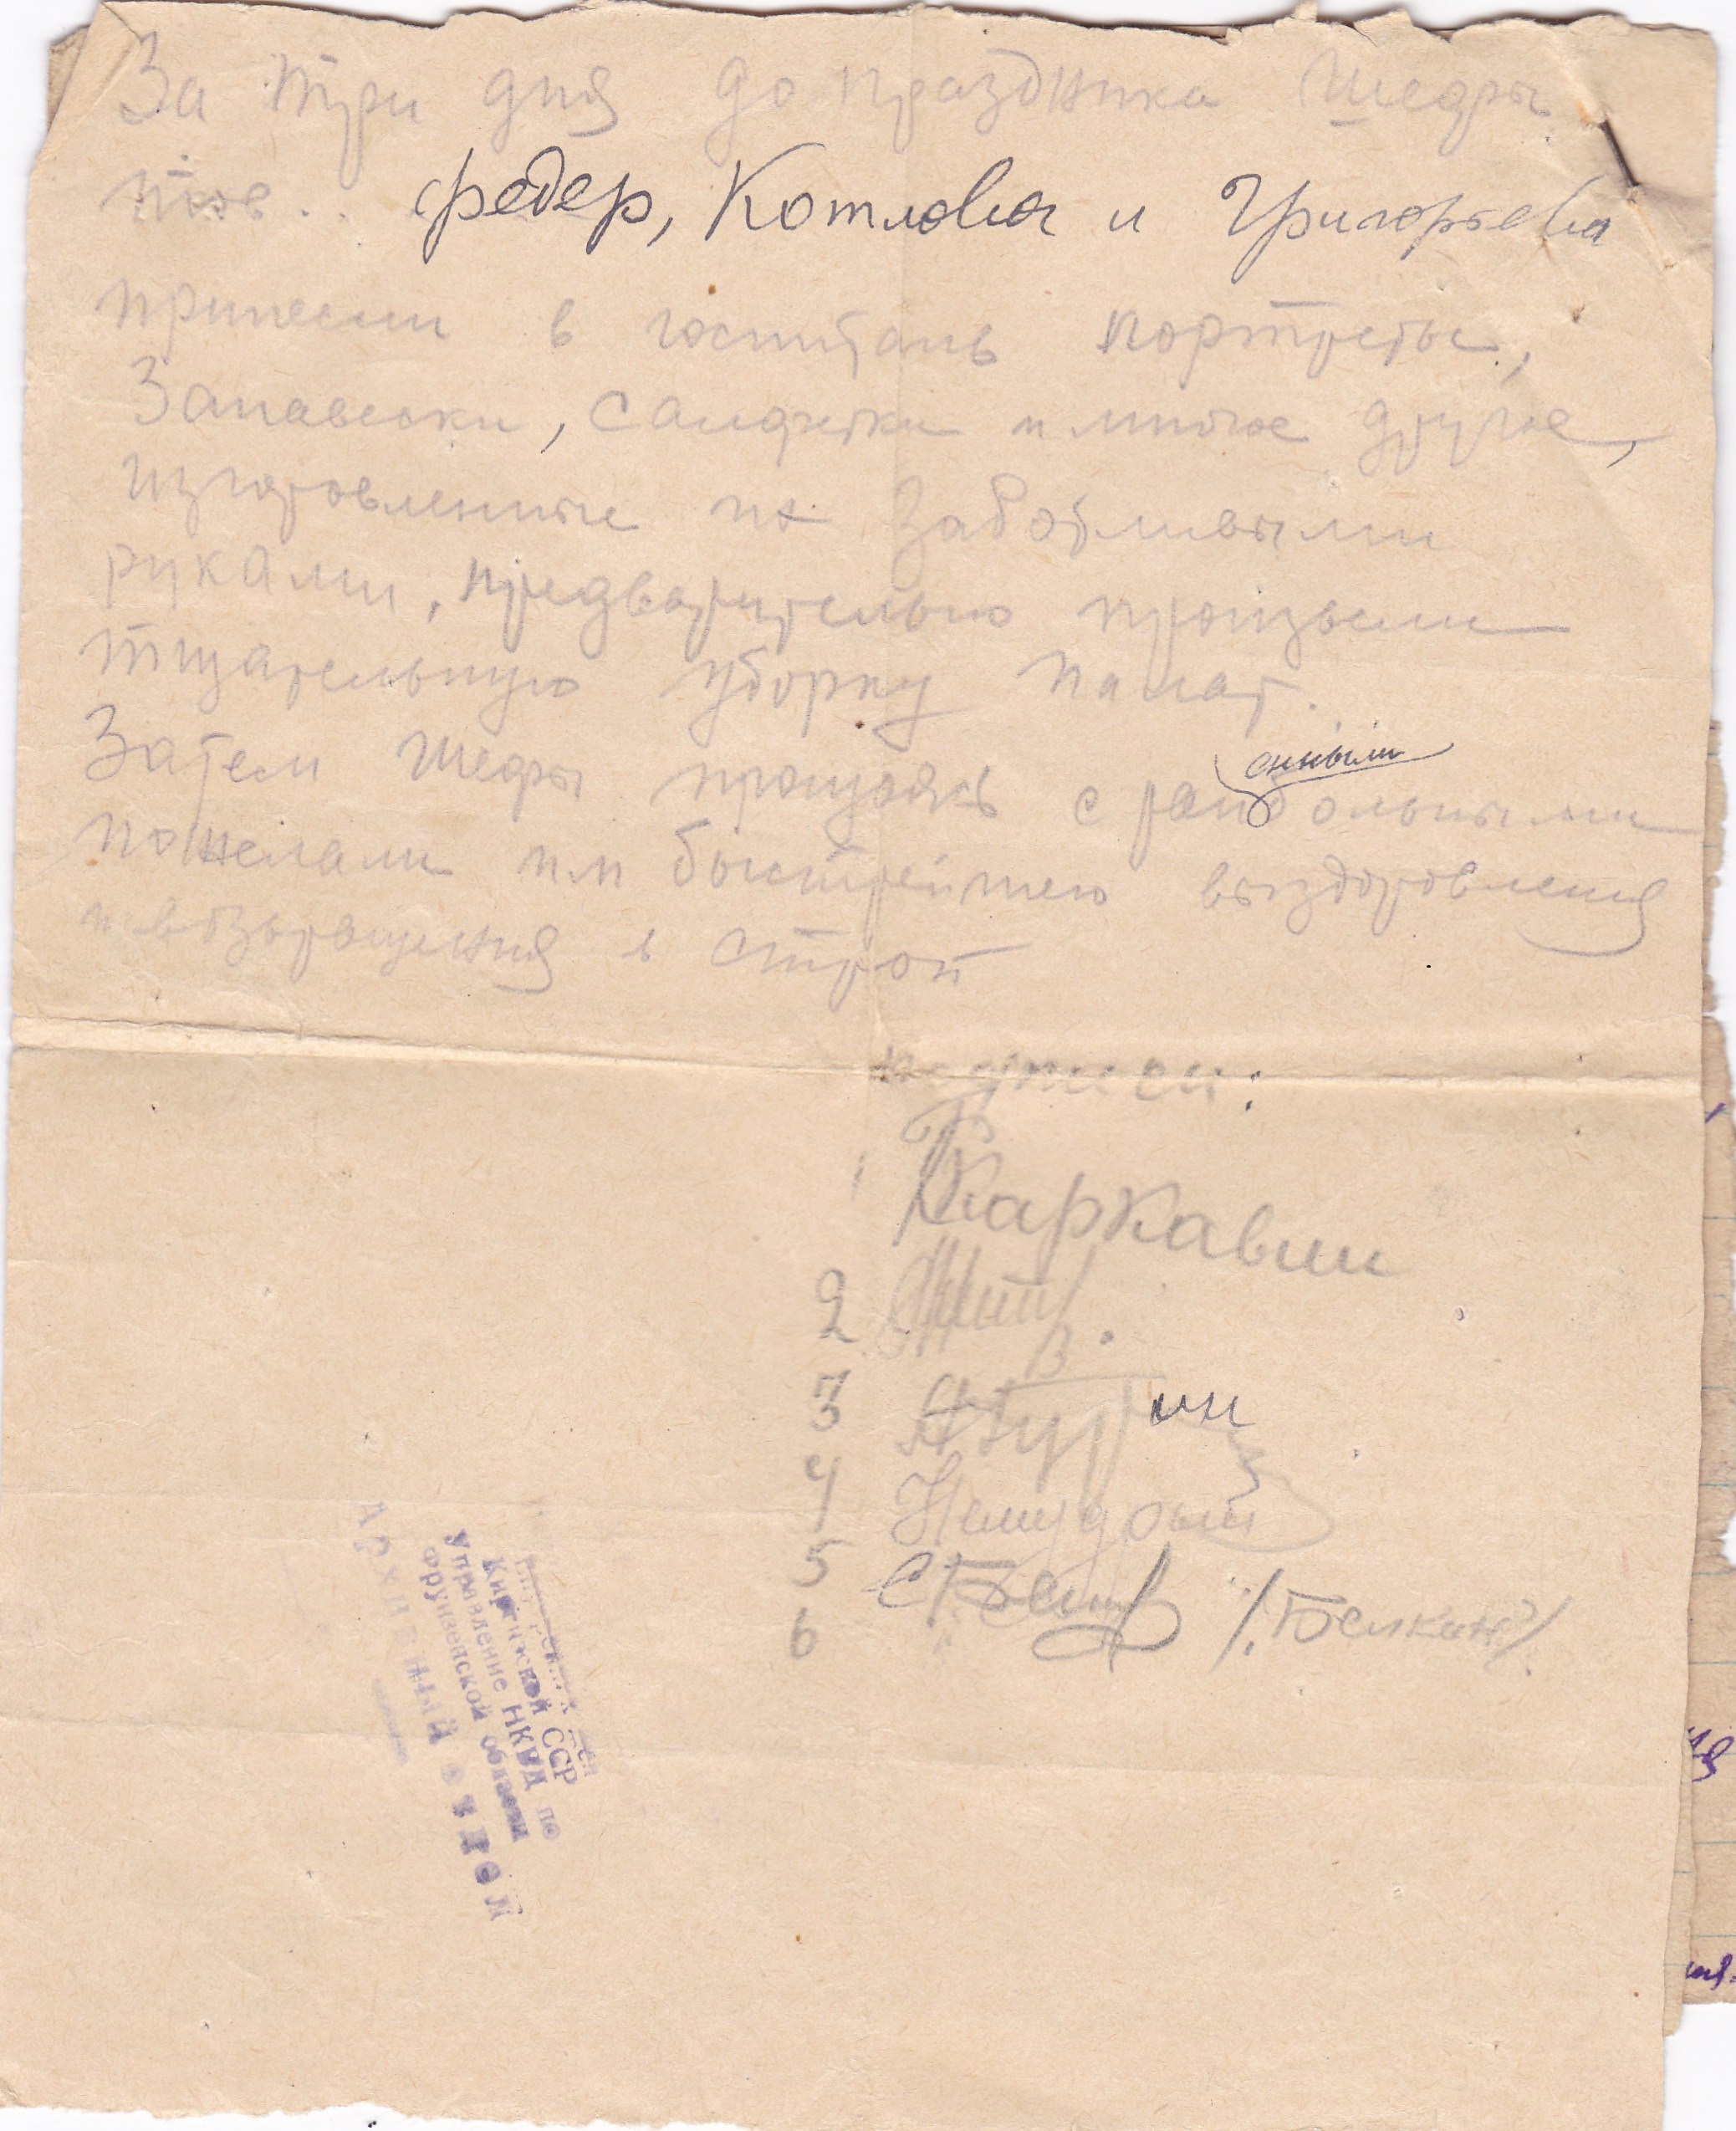 За три дня до праздника шефы
тов... Федер, Котлова и Григорьева
принесли в госпиталь портреты,
Занавески, салфетки и многое другое,
изготовленные их заботливыми
руками, предварительно произвели
тщательную уборку палат.
Затем шефы прощаясь с ранбольными
енными
пожелали им быстрейшего выздоровления
и возвращения в строй
подписи:
1 Каркавин
2
3
4 Немудрый
5 /Белкин/
6
Киргизской ССР
Управление НКВД по
Фрунзенской области
Архивный отдел